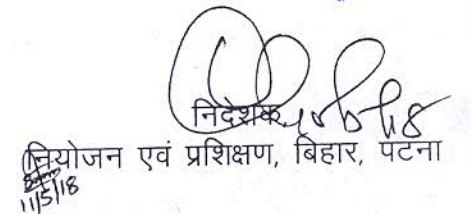 निदेशक,
नियोजन एवं प्रशिक्षण, बिहार, पटना
11/5/18